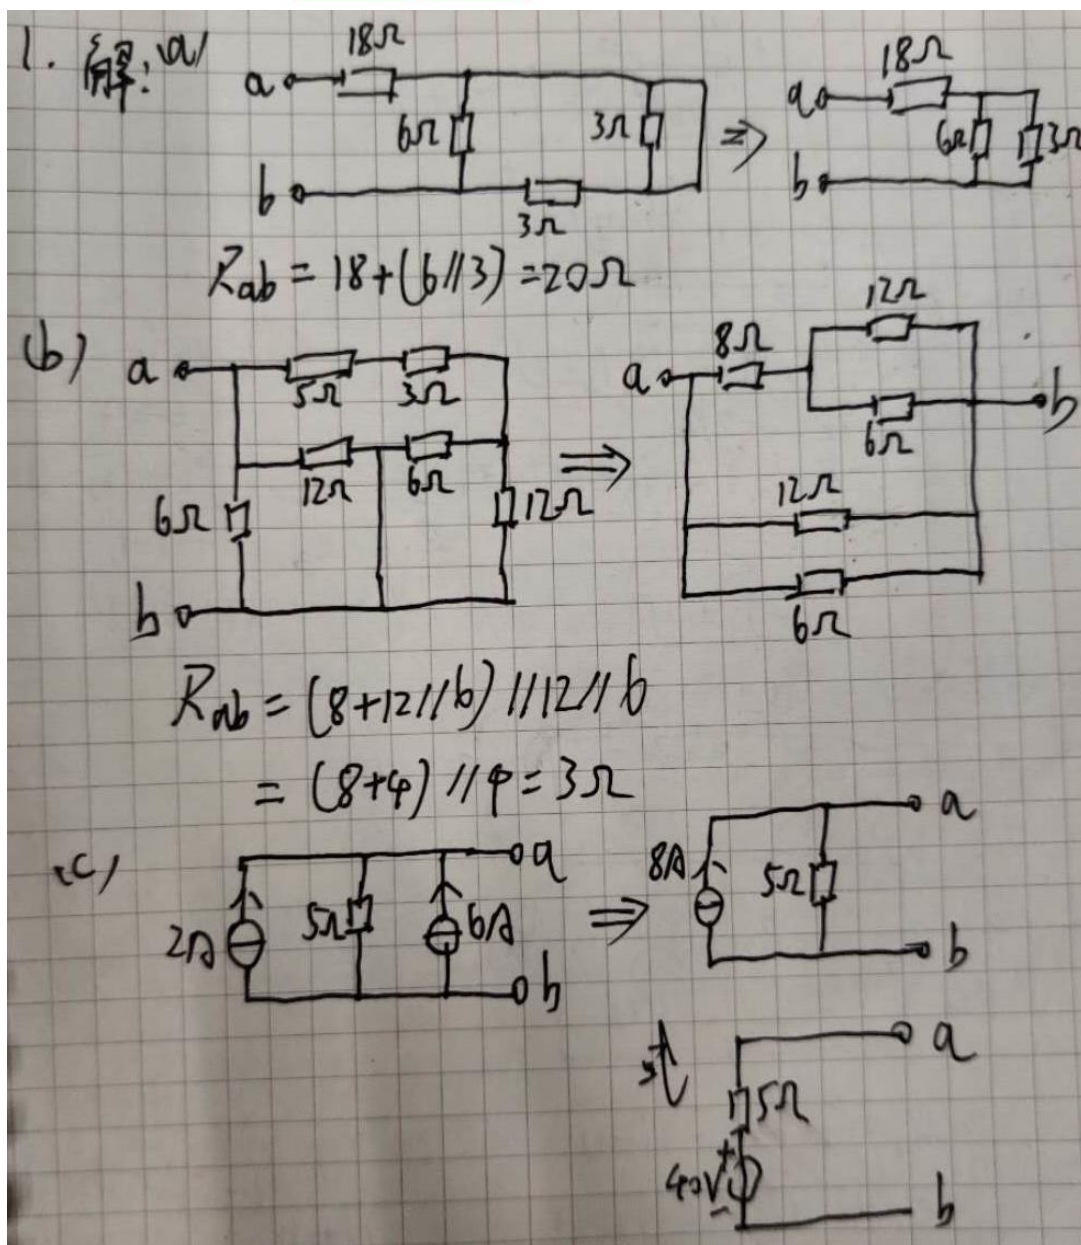 1. 解：(a)
18Ω
18Ω
a
6Ω
3Ω
⇒
a
6Ω
3Ω
b
3Ω
b
Rab = 18+(6//3) =20Ω
(b)
a
5Ω
3Ω
12Ω
6Ω
6Ω
12Ω
b
⇒
a
8Ω
12Ω
6Ω
b
12Ω
6Ω
Rab = (8+12//6)//12//6
= (8+4)//4 = 3Ω
(c)
2A
5Ω
6A
a
b
⇒
8A
5Ω
a
b
或
a
5Ω
+
40V
-
b